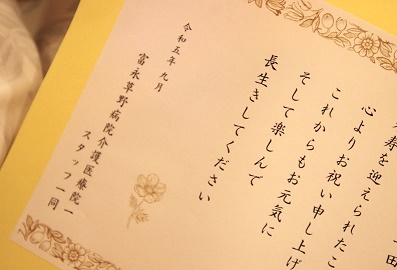 寿を迎えられたこ
心よりお祝い申し上げ
これからもお元気に
そして楽しんで
長生きしてください
令和五年九月
富永草野病院介護医療院
スタッフ一同